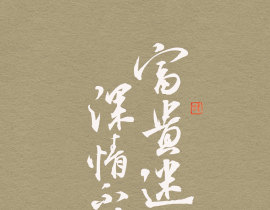 富贵迷
深情